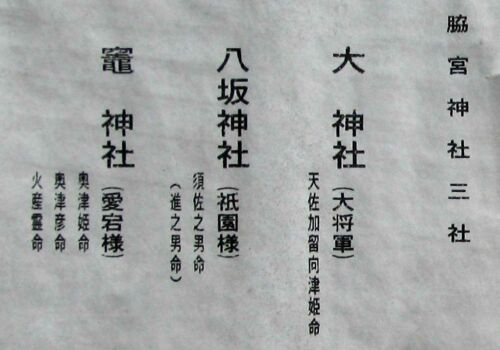 脇宮神社三社
大神社(大将軍)
天佐加留向津姫命
八坂神社(祇園様)
須佐之男命
(進之男命)
竈神社(愛宕様)
奥津姫命
奥津彦命
火産霊命